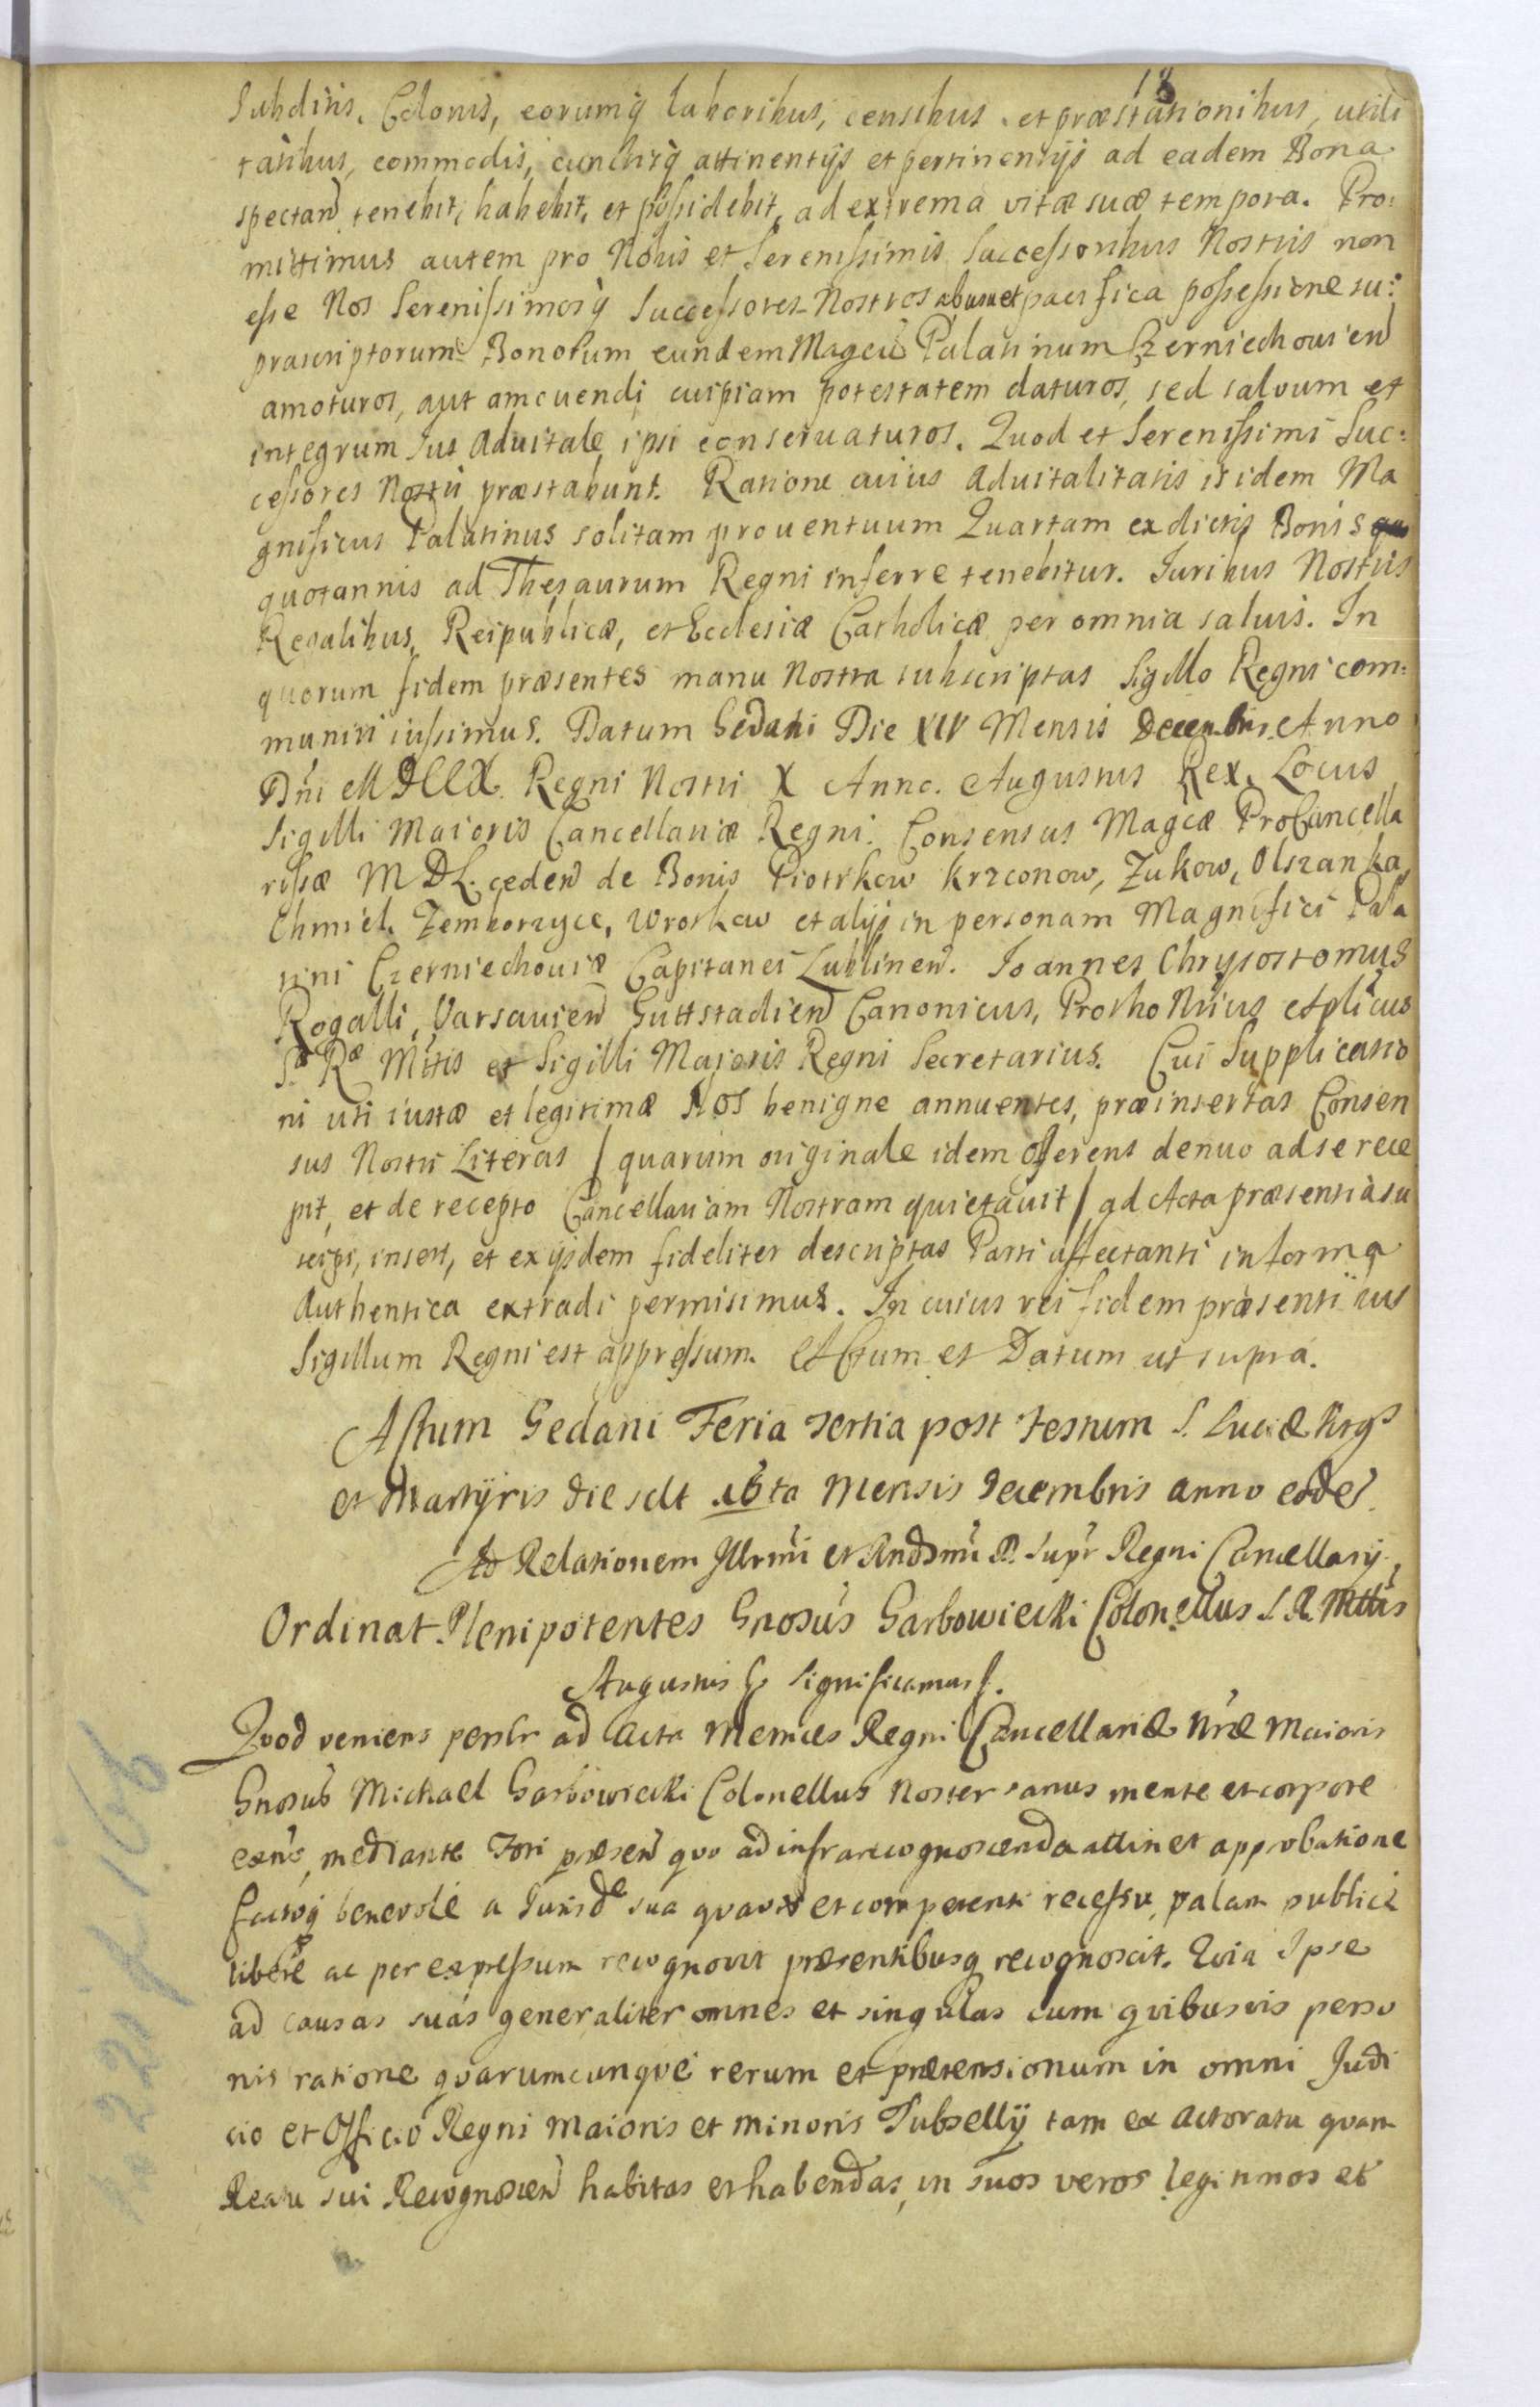 18
Subditis, Colonis, eorumq laboribus, censibus et præstationibus, utili
tatibus, commodis, cunctisq attinentijs et pertinentijs ad eadem Bona
spectan tenebit, habebit, et possidebit, ad extrema vitæ suæ tempora. Pro:
mittimus autem pro Nobis et Serenissimis Successoribus Nostris non
esse Nos Serenissimosq Successores Nostros ab usu et pacifica possessione su:
prascriptorum Bonorum eundem Magcu Palatinum Czerniechovien
amoturos, aut amovendi cuipiam potestatem daturos, sed salvum et
integrum Jus Advitale ipsi conservaturos. Quod et Serenissimi Suc:
cessores Nostri præstabunt. Ratione cuius Advitalitatis isidem Ma
gnificus Palatinus solitam proventuum Quartam ex dictis Bonis
quotannis ad Thesaurum Regni inferre tenebitur. Juribus Nostris
Regalibus, Reipublicæ, et Ecclesiæ Catholicæ per omnia salvis. In
quorum fidem præsentes manu Nostra subscriptas Sigillo Regni com:
muniri iussimus. Datum Gedani Die XIV Mensis Decembris Anno
Dni MDCCX. Regni Nostri X Anno. Augustus Rex. Locus
Sigilli Maioris Cancellariæ Regni. Consensus Magcæ ProCancella
rissæ M D L. ceden de Bonis Piotrkow Krzconow, Zukow, Olszanka,
Chmiel, Zemborzyce, Wrotkow et alijs in personam Magnifici Pala
tini Czerniechoviæ Capitanei Lublinen. Joannes Chrysostomus
Rogalli, Varsavien Guttstadien Canonicus, ProthoNrius Aplicus
S. Ræ Mttis et Sigilli Majoris Regni Secretarius. Cui Supplicatio
ni uti iustæ et legitimæ NOS benigne annuentes, præinsertas Consen
sus Nostri Literas / quarum originale idem Offerens denuo ad se rece
pit, et de recepto Cancellariam Nostram quietavit / ad Acta præsentia su
scipi, inseri, et ex ijsdem fideliter descriptas Parti affectanti in forma
Authentica extradi permisimus. In cuius rei fidem præsentibus
Sigillum Regni est appressum. Actum et Datum ut supra.
Actum Gedani Feria tertia post Festum S. Luciæ Virgs
et Martyris die sclt 16ta Mensis Decembris anno eode
Ad Relationem Illrmi et Rndsmi D. Supr Regni Cancellarij
Ordinat Plenipotentes Gnosus Garbowiecki Colonellus S. R. Mttis
Augustus &c Significamus &c.
Quod veniens personlr ad Acta Metrices Regni Cancellariæ Nræ Maioris
Gnosus Michael Garbowiecki Colonellus Noster sanus mente et corpore
exns, mediante Fori præsen quo ad infrarecognoscenda attinet approbatione
factoq benevole a Jurisde sua quavis et competenti recessu, palam publice
libere ac per expressum recognovit præsentibusq recognoscit. Quia Ipse
ad causas suas generaliter omnes et singulas cum quibusvis perso
nis ratione quarumcunque rerum et prætensionum in omni Judi
cio et Officio Regni Maioris et Minoris Subsellij tam ex Actoratu quam
Reatu sui Recognoscen habitas et habendas, in suos veros legitimos et